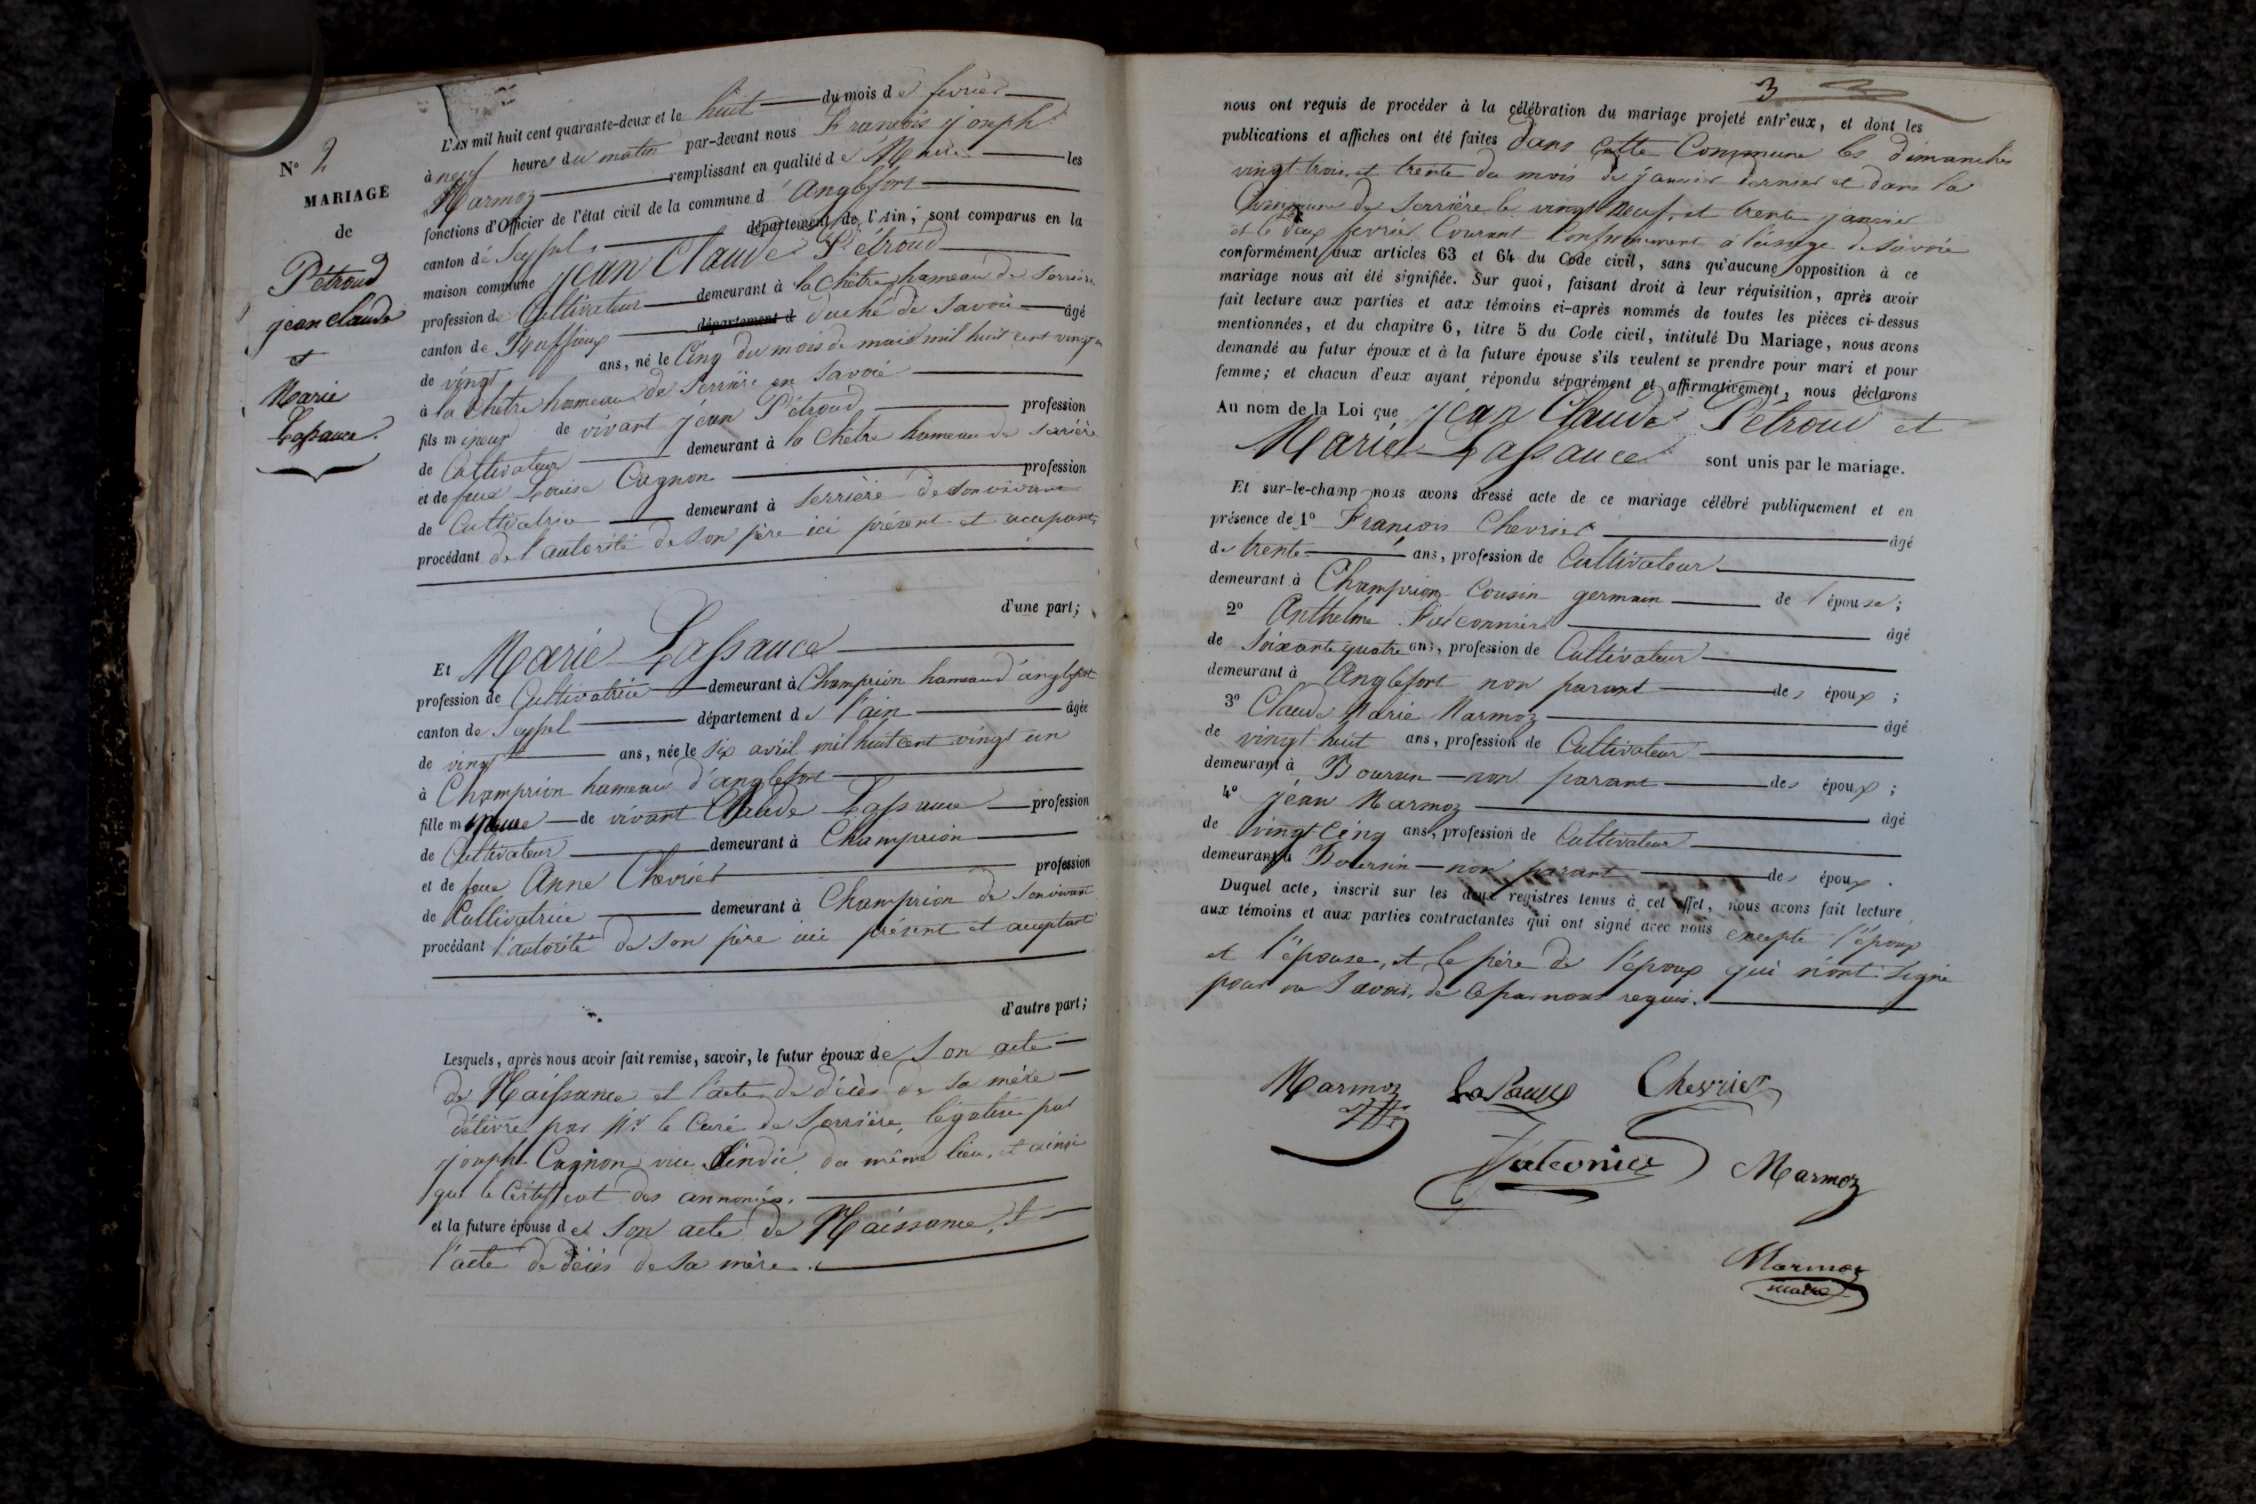 N° 2
MARIAGE
de
Pétroud
jean claude
et
Marie
Lassauce.
L'AN mil huit cent quarante-deux et le huit du mois de fevrier
à neuf heures du matin par-devant nous François joseph
Marmoz remplissant en qualité de Maire les
fonctions d'Officier de l'état civil de la commune d'Anglefort
canton de Seyssel département de l'Ain, sont comparus en la
maison commune jean Claude Pétroud
profession de Cultivateur demeurant à la Chêtre hameau de Serrière
canton de Ruffieux département d duché de Savoie âgé
de vingt ans, né le Cinq du mois de mai mil huit cent vingt un
à la Chêtre hameau de Serrière en Savoie
fils mineur de vivant jéan Pétroud profession
de Cultivateur demeurant à la Chêtre hameau de Serrière
et de feue Louise Cagnon profession
de Cultivatrice demeurant à Serrière de son vivant
procédant de l'autorité de son père ici présent et acceptant
d'une part;
Et Marie Lassauce
profession de Cultivatrice demeurant à Champrion hameau d'anglefort
canton de Seyssel département de l'ain âgée
de vingt ans, née le six avril mil huit cent vingt un
à Champrion hameau d'anglefort
fille mineure de vivant Claude Lassauce profession
de Cultivateur demeurant à Champrion
et de feue Anne Chevrier profession
de Cultivatrice demeurant à Champrion de son vivant
procédant l'autorité de son père ici présent et acceptant
d'autre part;
Lesquels, après nous avoir fait remise, savoir, le futur époux de son acte
de Naissance et l'acte de décès de sa mère
délivré par Mr le Curé de Serrière, légalisé par
joseph Cagnon vice Sindic du même lieu, et ainsi
que le Certificat des annonces.
et la future épouse de son acte de Naissance, et
l'acte de décès de sa mère.
3
nous ont requis de procéder à la célébration du mariage projeté entr'eux, et dont les
publications et affiches ont été faites dans cette Commune les dimanches
vingt trois et trente du mois de janvier dernier et dans la
Commune de Serrière le vingt neuf, et trente janvier
et le deux fevrier Courant Conformément à l'usage de Savoie
conformément aux articles 63 et 64 du Code civil, sans qu'aucune opposition à ce
mariage nous ait été signifiée. Sur quoi, faisant droit à leur réquisition, après avoir
fait lecture aux parties et aux témoins ci-après nommés de toutes les pièces ci-dessus
mentionnées, et du chapitre 6, titre 5 du Code civil, intitulé Du Mariage, nous avons
demandé au futur époux et à la future épouse s'ils veulent se prendre pour mari et pour
femme; et chacun d'eux ayant répondu séparément et affirmativement, nous déclarons
Au nom de la Loi que jean Claude Pétroud et
Marie Lassauce sont unis par le mariage.
Et sur-le-champ nous avons dressé acte de ce mariage célébré publiquement et en
présence de 1° François Chevrier âgé
de trente ans, profession de Cultivateur
demeurant à Champrion Cousin germain de l'épouse;
2° Anthelme Falconnier âgé
de soixante quatre ans, profession de Cultivateur
demeurant à Anglefort non parant des époux;
3° Claude Marie Marmoz âgé
de vingt huit ans, profession de Cultivateur
demeurant à Boursin non parant des époux;
4° jéan Marmoz âgé
de vingt Cinq ans, profession de Cultivateur
demeurant à Boursin non parant des époux.
Duquel acte, inscrit sur les deux registres tenus à cet effet, nous avons fait lecture
aux témoins et aux parties contractantes qui ont signé avec nous excepté l'époux
et l'épouse, et le père de l'époux qui n'ont signé
pour ne savoir, de ce par nous requis.
Marmoz LaSauce Chevrier
Falconier Marmoz
Marmoz
maire